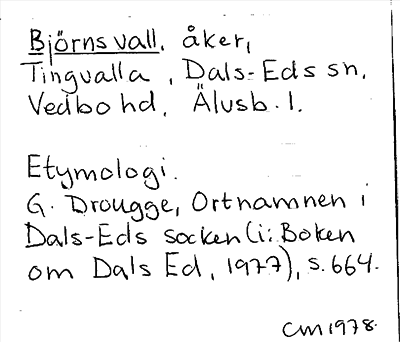 Björnsvall, åker,
Tingvalla, Dals-Eds sn,
Vedbo hd, Älvsb. l.
Etymologi.
G. Drougge, Ortnamnen i
Dals-Eds socken (i: Boken
om Dals Ed, 1977), s. 664.
CM 1978.